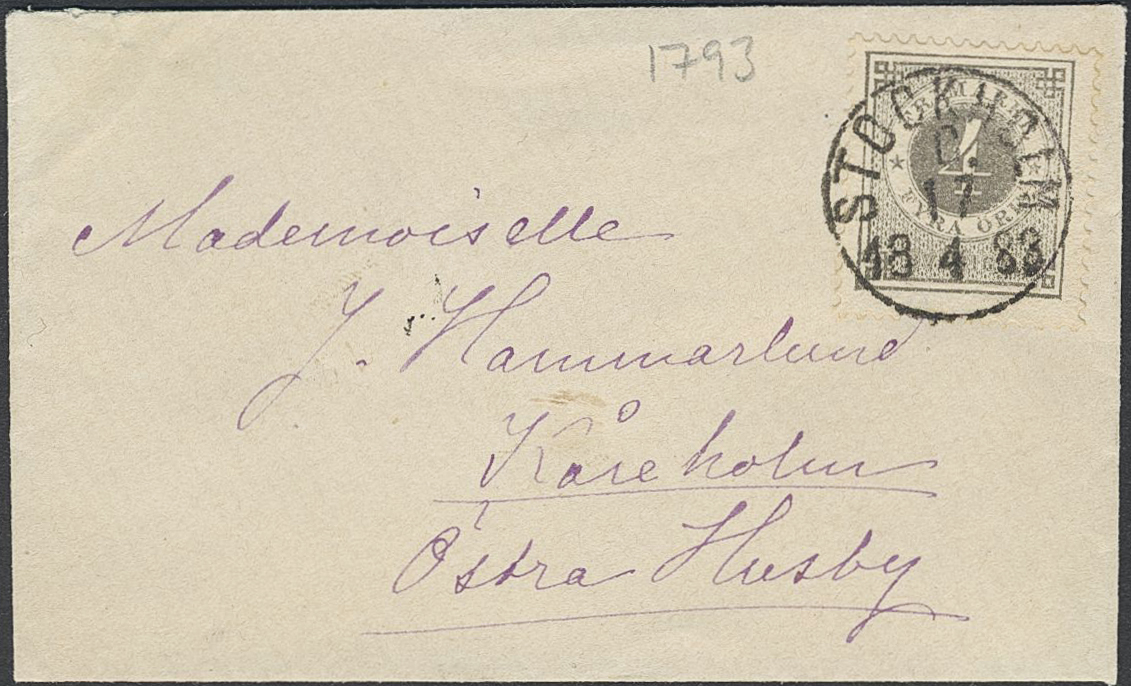 1793
STOCKHOLM
17
18 4 83
4
FYRA ÖRE
Mademoiselle
J. Hammarlund
Kåreholm
Östra Husby